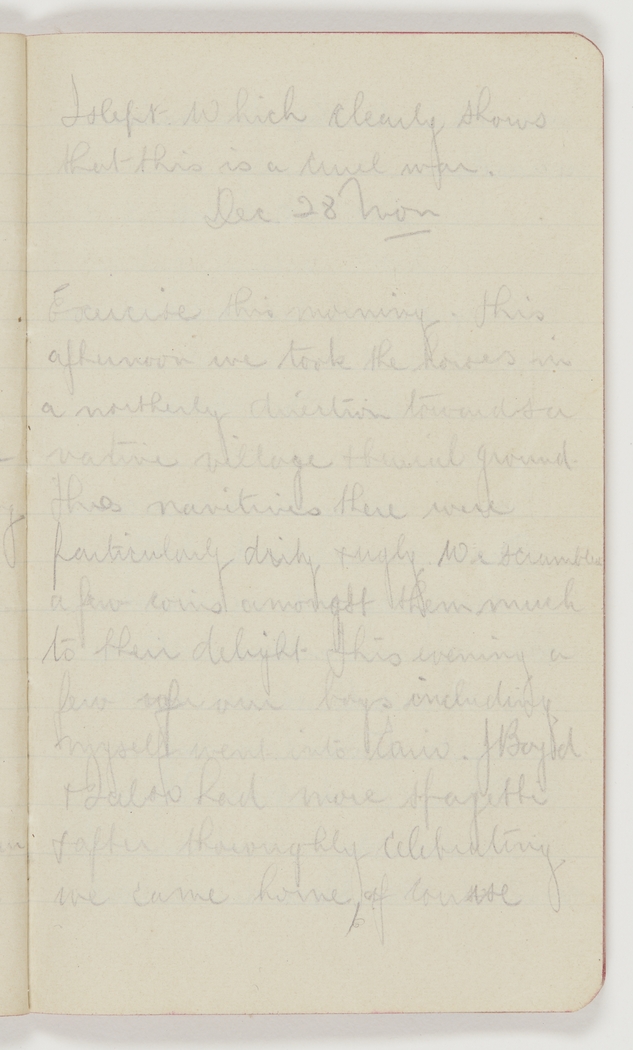 I slept. Which clearly shows
that this is a cruel war.
Dec 28 Mon
Exercise this morning. This
afternoon we took the horses in
a northerly direction towards a
native village & burial ground
The navitives there were
particularly dirty & ugly We scrambled
a few coins amongst them much
to their delight This evening a
few of our boys including
myself went into Cairo. J Boyd
& I also had more spagetti
& after thoroughly celebrating
we came home, of course